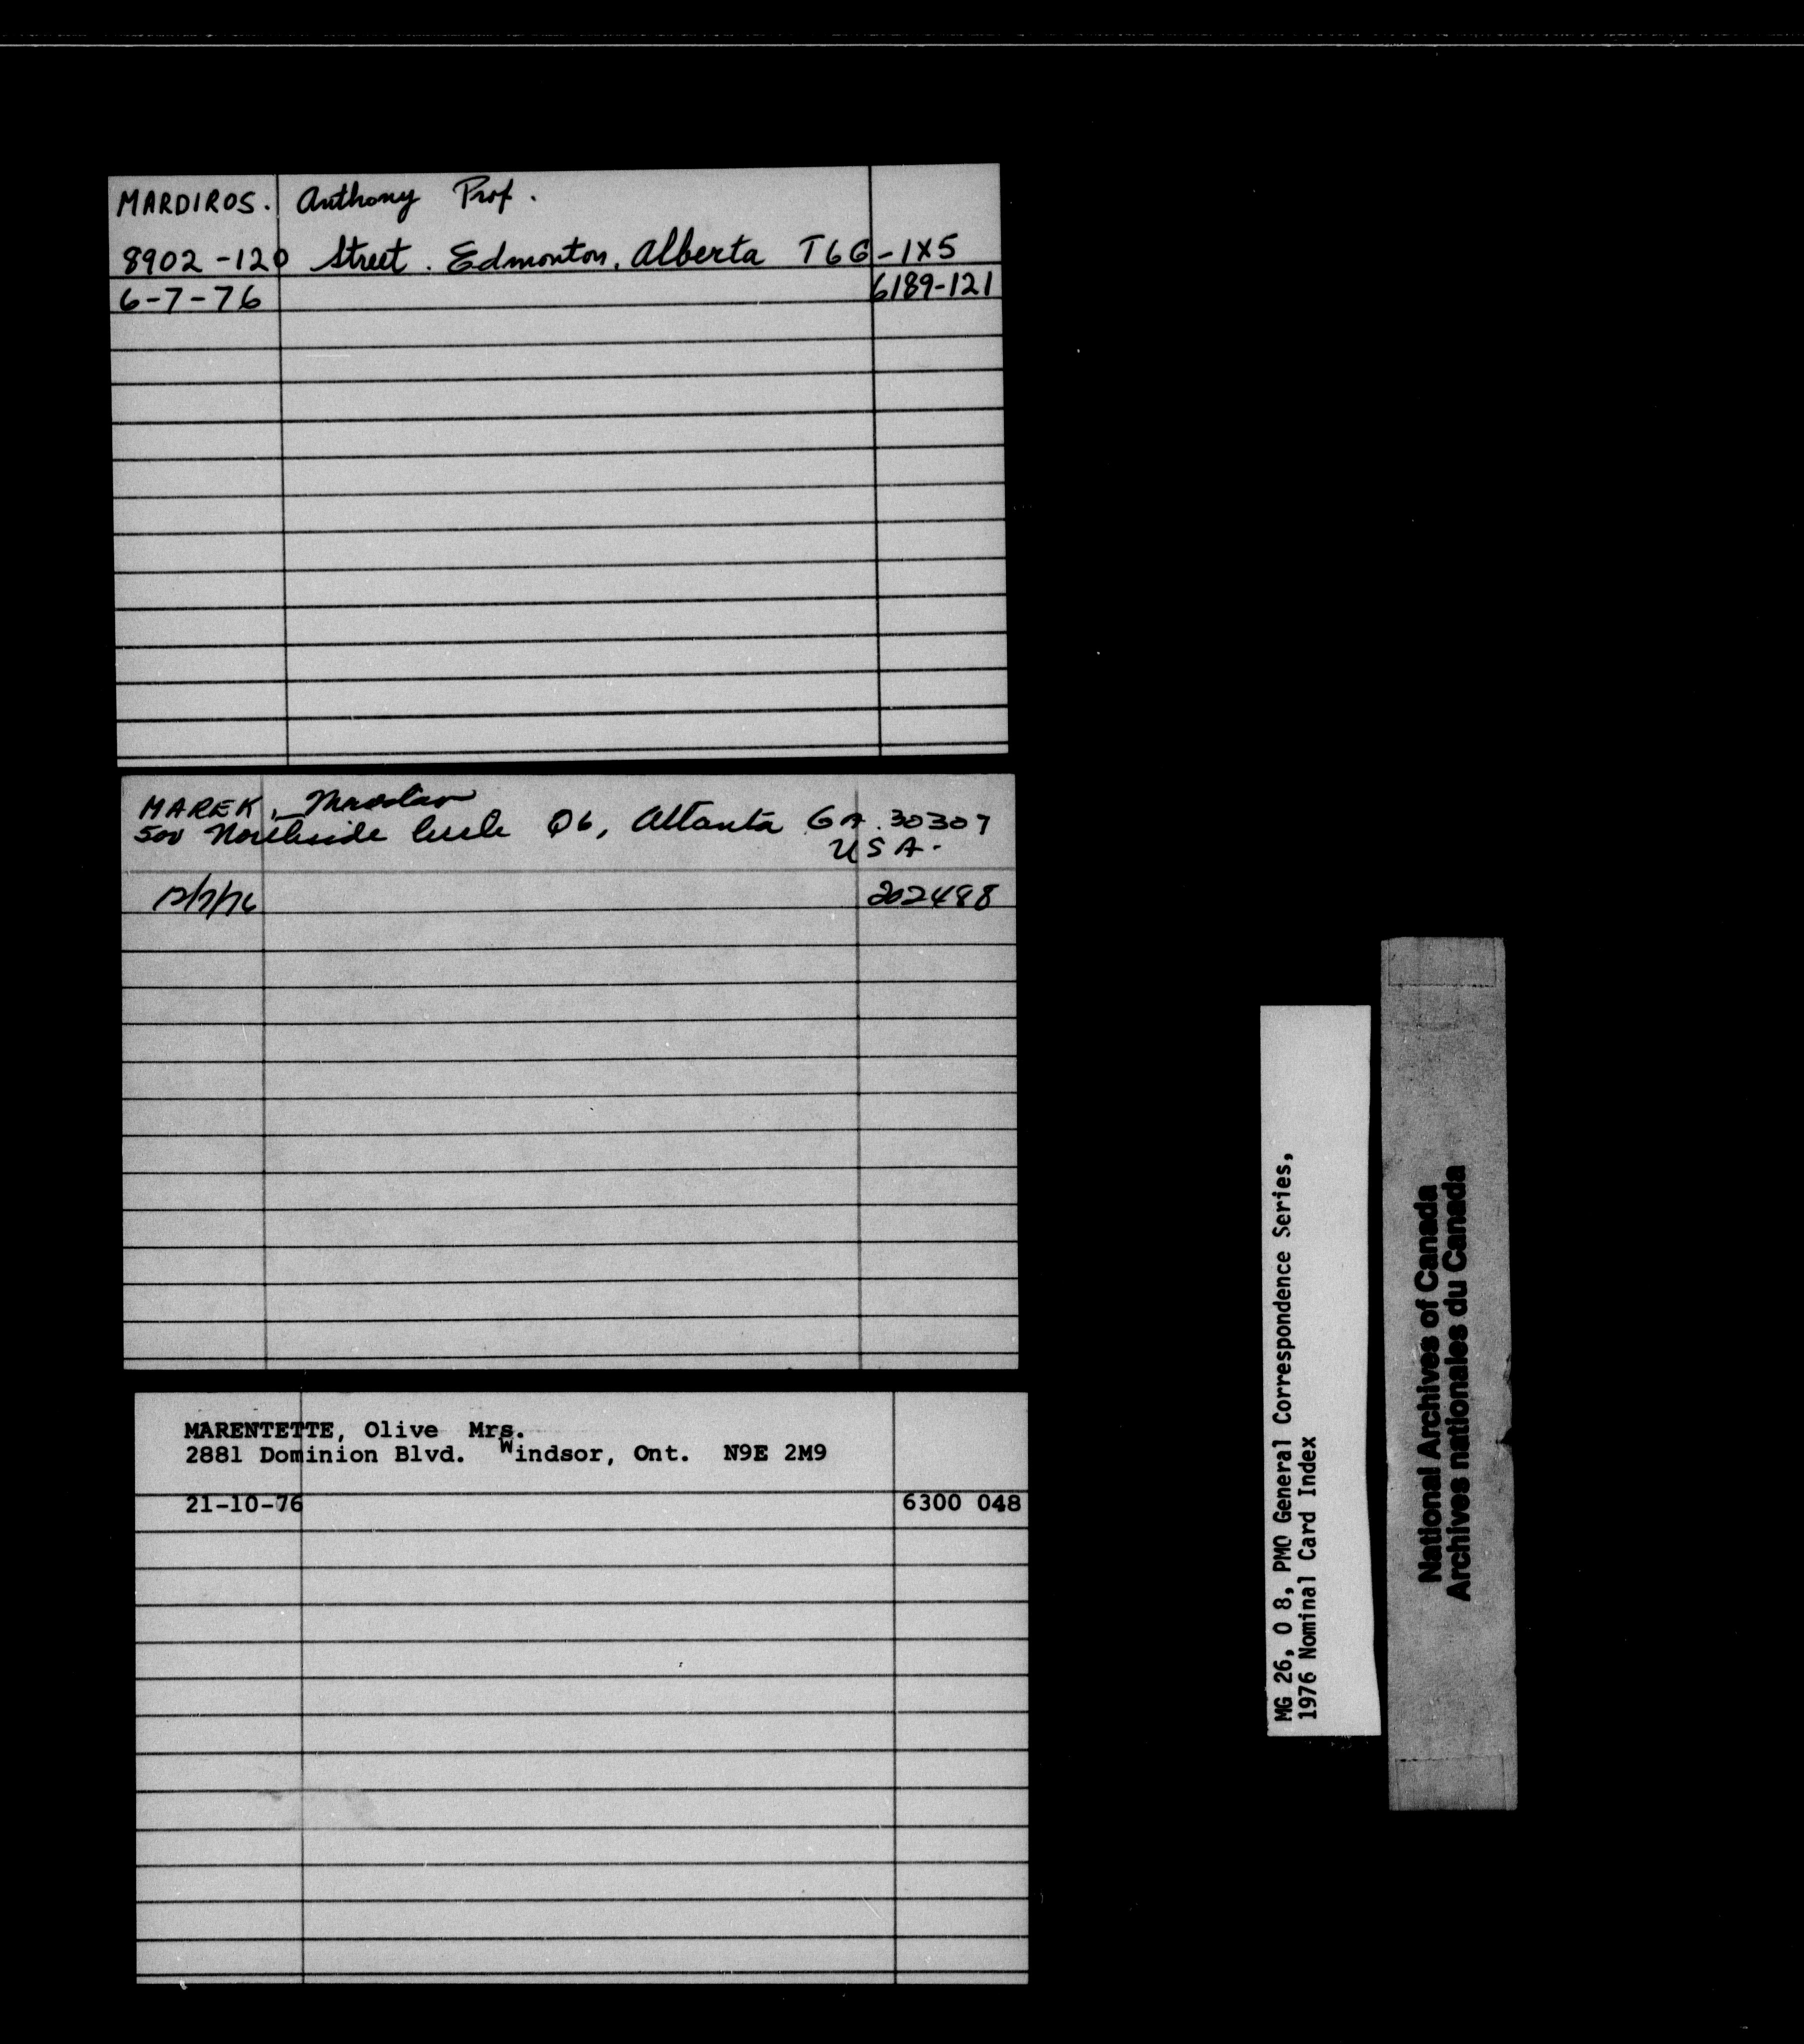 MARDIROS. Anthony Prof.
8902-120 Street. Edmonton, Alberta T6G-1X5
6-7-76 6189-121
MAREK,
500 Northside Circle Q6, Atlanta GA. 30309
USA.
12/7/76 202488
MARENTETTE, Olive Mrs.
2881 Dominion Blvd. Windsor, Ont. N9E 2M9
21-10-76 6300 048
MG 26, O 8, PMO General Correspondence Series,
1976 Nominal Card Index
National Archives of Canada
Archives nationales du Canada